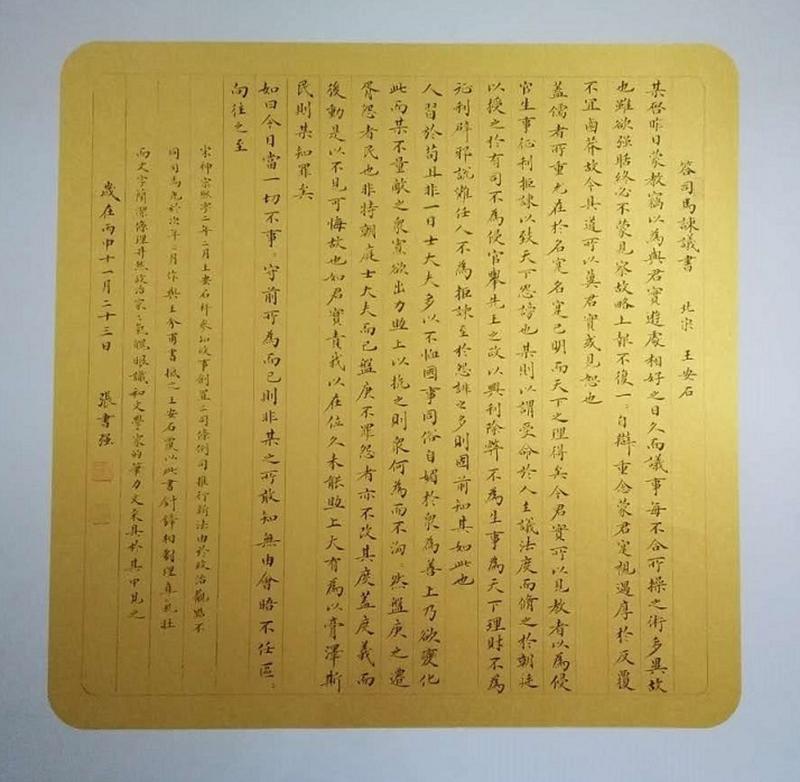 答司馬諫議書 北宋 王安石
某啓昨日蒙教竊以為與君實遊處相好之日久而議事每不合所操之術多異故
也雖欲强聒終必不蒙見察故略上報不復一〻自辯重念蒙君實視遇厚於反覆
不宜鹵莽故今具道所以冀君實或見恕也
蓋儒者所重尤在於名實名實已明而天下之理得矣今君實所以見教者以為侵
官生事征利拒諫以致天下怨謗也某則以謂受命於人主議法度而脩之於朝廷
以授之於有司不為侵官舉先王之政以興利除弊不為生事為天下理財不為
征利辟邪説難任人不為拒諫至於怨誹之多則固前知其如此也
人習於苟且非一日士大夫多以不恤國事同俗自媚於衆為善上乃欲變化
此而某不量敵之衆寡欲出力助上以抗之則衆何為而不洶〻然盤庚之遷
胥怨者民也非特朝庭士大夫而已盤庚不罪怨者亦不改其度蓋度義而
後動是以不見可悔故也如君實責我以在位久未能助上大有為以膏澤斯
民則某知罪矣
如曰今日當一切不事〻守前所為而已則非某之所敢知無由會晤不任區〻
向往之至
宋神宗熙寧二年二月王安石拜參知政事創置三司條例司推行新法由於政治觀點不
同司馬光於次年二月作與王介甫書抵之王安石覆以此書針鋒相對理直氣壯
而文字簡潔條理井然政治家之氣魄眼識和文學家的筆力文采具於其中見之
歲在丙申十一月二十三日 張書强